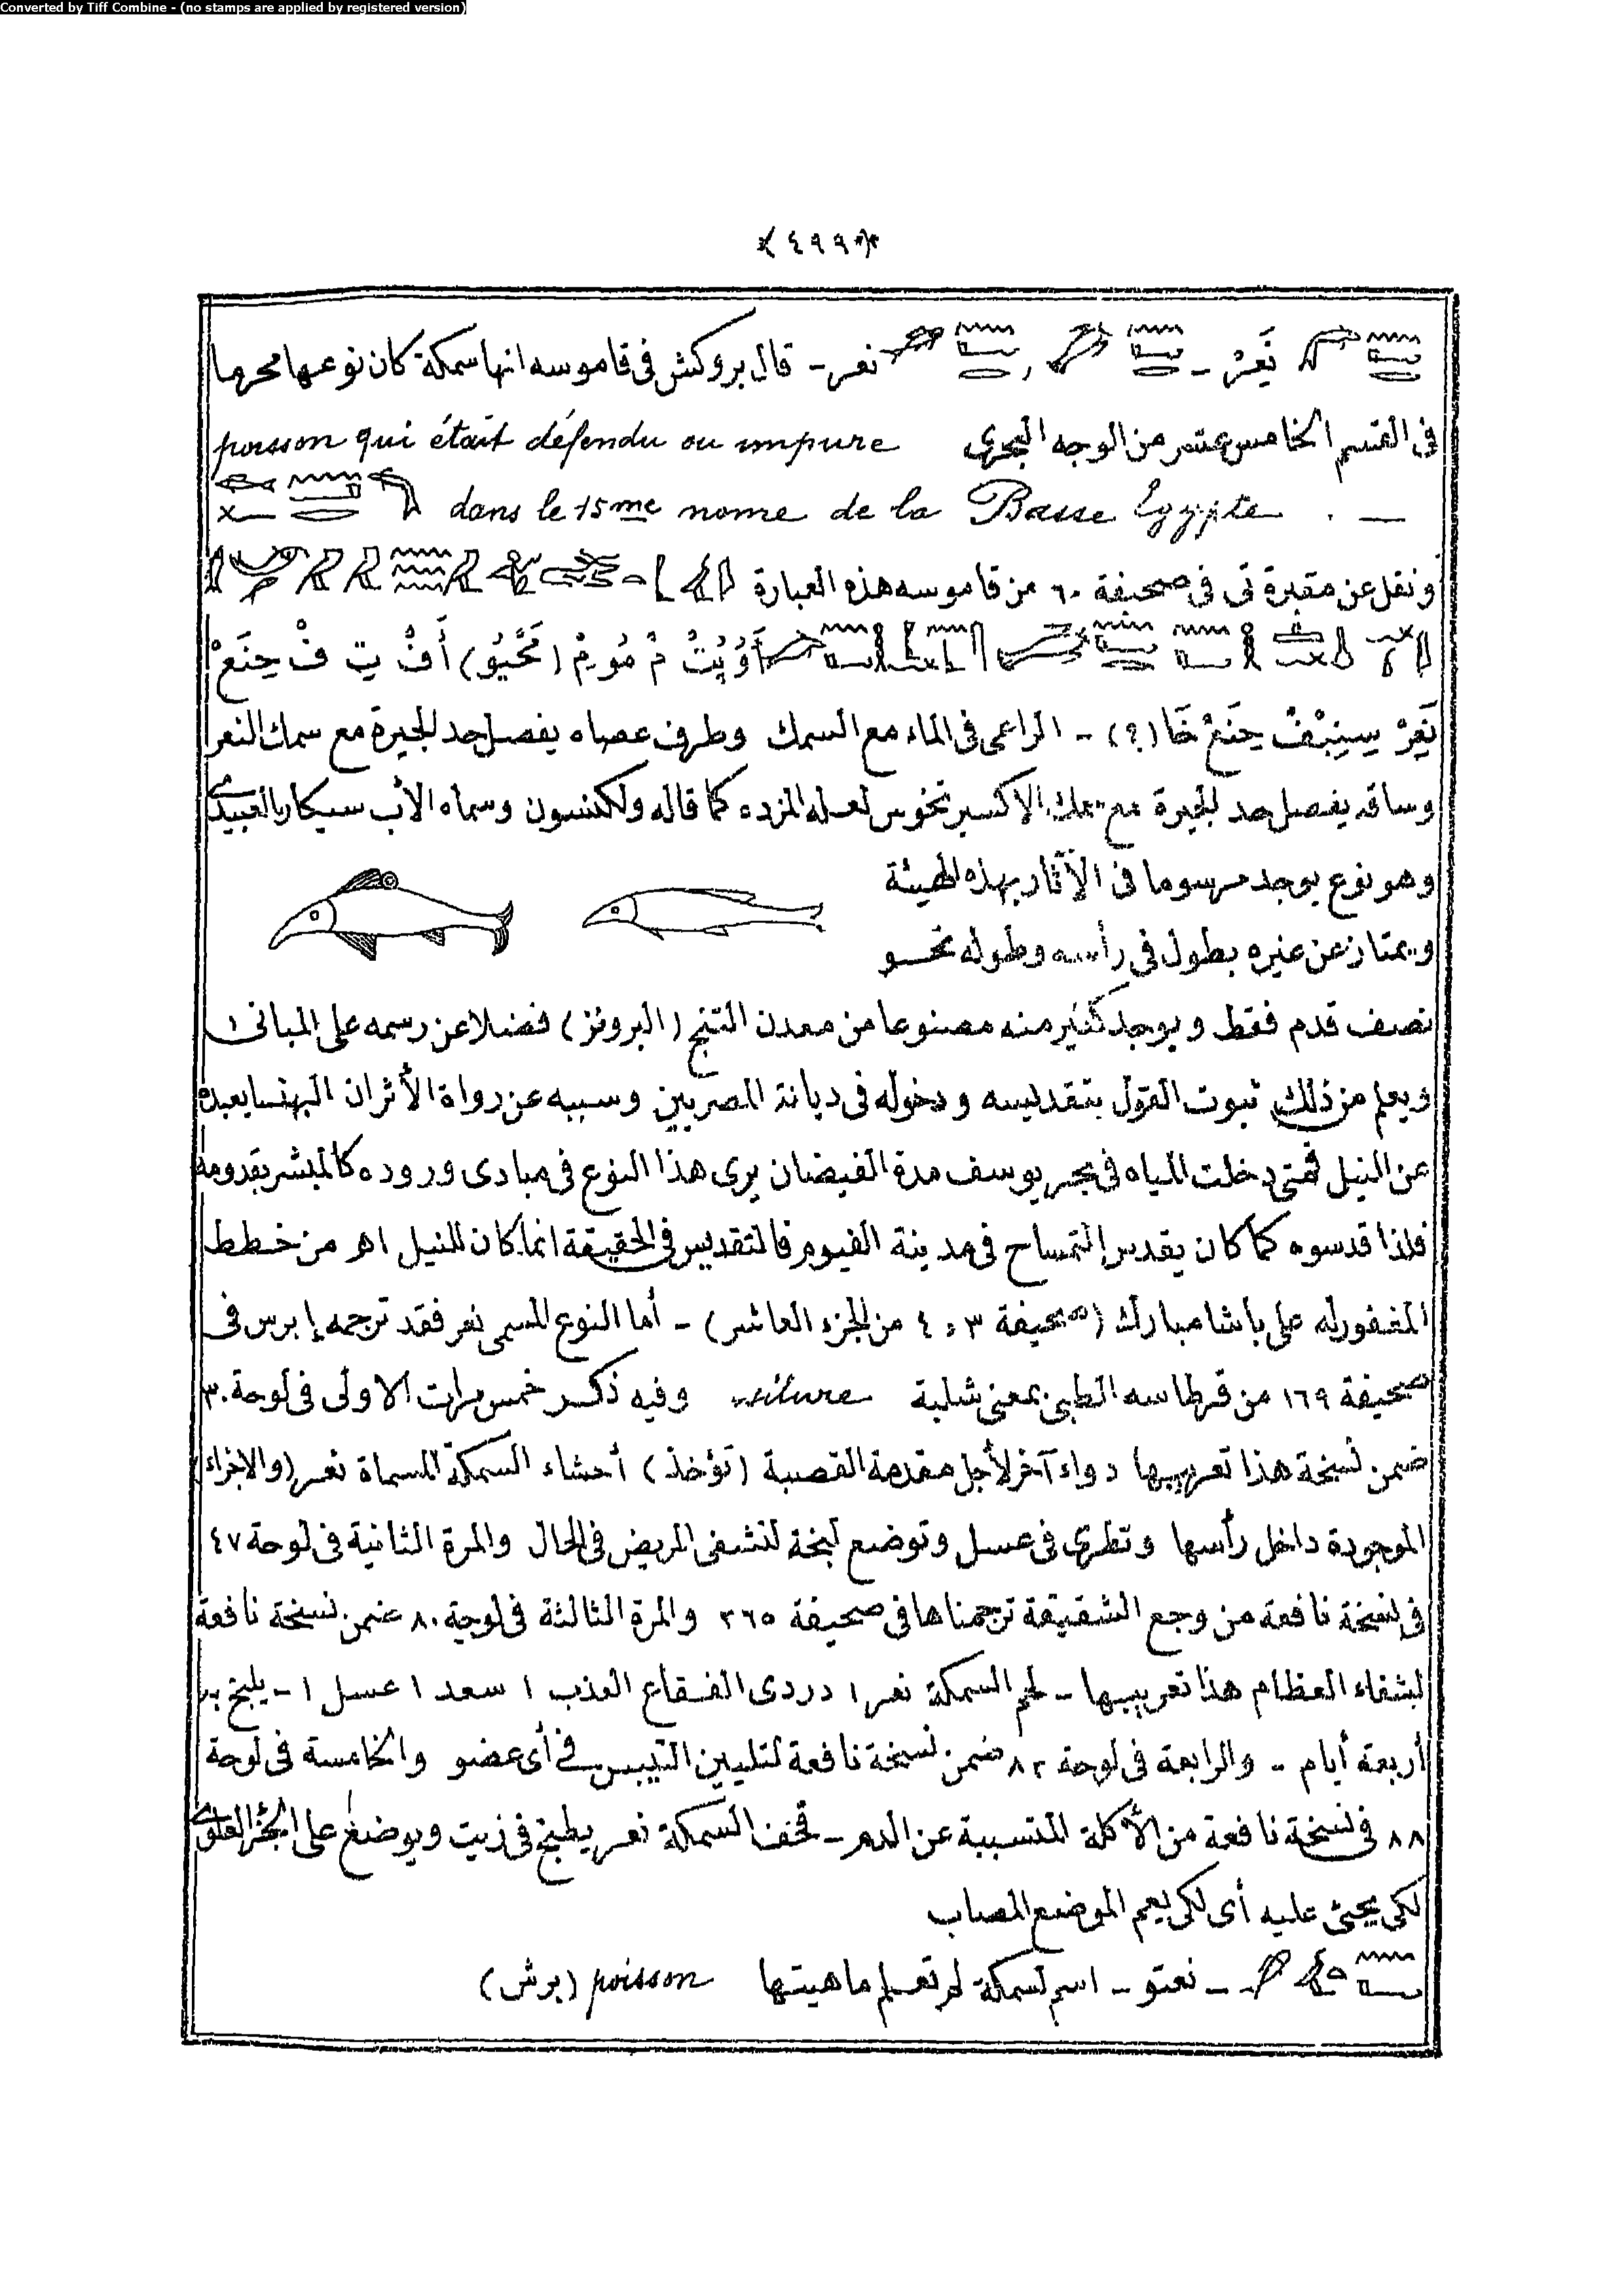 Converted by Tiff Combine - (no stamps are applied by registered version)
٤٩٩
نَعِرْ - , نعر - قال بروكش فى قاموسه انها سمكة كان نوعها محرما
فى القسم الخامس عشر من الوجه البحرى poisson qui était défendu ou impure
dans le 15me nome de la Basse Egypte . —
ونقل عن مقبرة تى فى صحيفة ٦٠ من قاموسه هذه العبارة
نَعِرْ سِيبْفْ حِنَعْ خَا (؟) - الراعى فى الماء مع السمك وطرف عصاه يفصل حد البحيرة مع سمك النعر
وساقه يفصل حد البحيرة مع سمك الاكسيرنخوس لعله المزده كما قاله ولكنسون وسماه الأب سيكار بالقبيدى
وهو نوع يوجد مرسوما فى الآثار بهذه الهيئة
ويمتاز عن غيره بطول فى رأسه وطوله نحو
نصف قدم فقط ويوجد كثير منه مصنوعا من معدن التنج (البرونز) فضلا عن رسمه على المبانى
ويعلم من ذلك ثبوت القول بتقديسه ودخوله فى ديانة المصريين وسببه عن رواة الأثر ان البهنسا بعيدة
عن النيل فمتى دخلت المياه فى بحر يوسف مدة الفيضان يرى هذا النوع فى مبادى وروده كالمبشر بقدومه
فلذا قدسوه كما كان يقدس التمساح فى مدينة الفيوم فالتقديس فى الحقيقة انما كان للنيل اهـ من خطط
المغفور له على باشا مبارك (صحيفة ٣ و ٤ من الجزء العاشر) - أما النوع المسمى نعر فقد ترجمه إبرس فى
صحيفة ١٦٩ من قرطاسه الطبى بمعنى شلبة silure وفيه ذكر خمس مرات الاولى فى لوحة ٣٠
ضمن نسخة هذا تعريبها دواء آخر لأجل مقدمة القصبة (تؤخذ) أحشاء السمكة المسماة نعر (والاجزاء)
الموجودة داخل رأسها وتطرى فى عسل وتوضع لبخة لتشفى المريض فى الحال والمرة الثانية فى لوحة ٤٧
فى نسخة نافعة من وجع الشقيقة ترجمناها فى صحيفة ٣٦٥ والمرة الثالثة فى لوحة ٨٠ ضمن نسخة نافعة
لشفاء العظام هذا تعريبها - لحم السمكة نعر ١ دردى الفقاع العذب ١ سعد ١ عسل ١ - يلبخ به
أربعة أيام - والرابعة فى لوحة ٨٢ ضمن نسخة نافعة لتليين التيبس فى أى عضو والخامسة فى لوحة
٨٨ فى نسخة نافعة من الأكلة المتسببة عن الدم - قحف السمكة نعر يطبخ فى زيت ويوضع على الجزء العلوى
لكى يحيى عليه أى لكى يعم الموضع المصاب
- نعتو - اسم لسمكة لم تعلم ماهيتها poisson (برش)